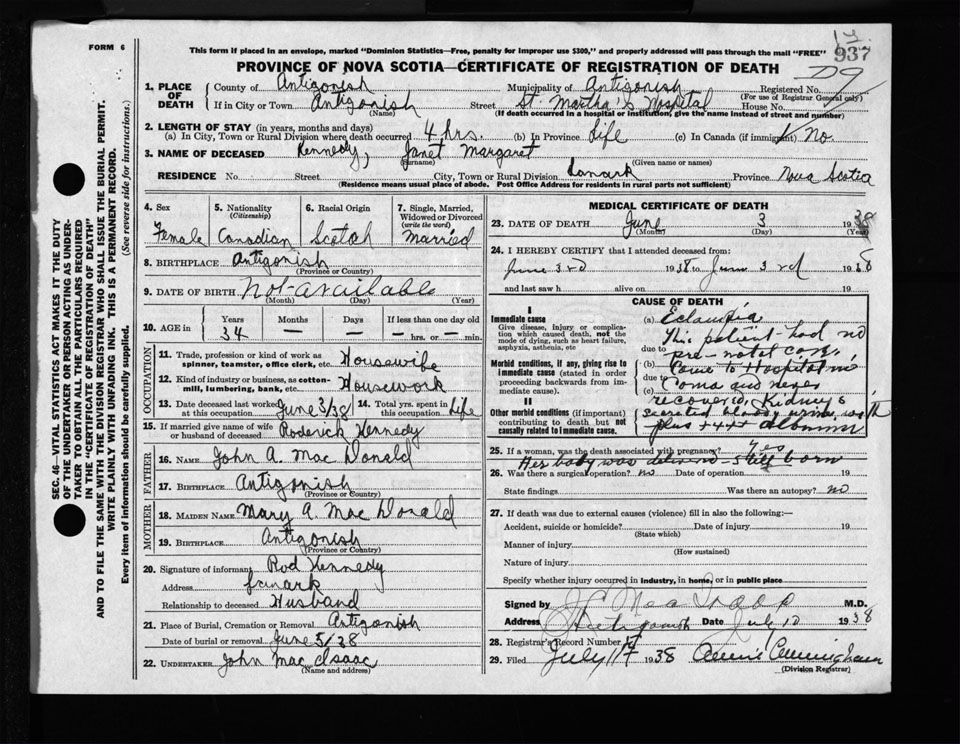 FORM 6
This form if placed in an envelope, marked "Dominion Statistics—Free, penalty for improper use $300," and properly addressed will pass through the mail "FREE"
937
PROVINCE OF NOVA SCOTIA—CERTIFICATE OF REGISTRATION OF DEATH
SEC. 46—VITAL STATISTICS ACT MAKES IT THE DUTY
OF THE UNDERTAKER OR PERSON ACTING AS UNDER-
TAKER TO OBTAIN ALL THE PARTICULARS REQUIRED
IN THE "CERTIFICATE OF REGISTRATION OF DEATH"
AND TO FILE THE SAME WITH THE DIVISION REGISTRAR WHO SHALL ISSUE THE BURIAL PERMIT.
WRITE PLAINLY WITH UNFADING INK. THIS IS A PERMANENT RECORD.
Every item of information should be carefully supplied. (See reverse side for instructions.)
1. PLACE OF DEATH
County of Antigonish Municipality of Antigonish Registered No.
(For use of Registrar General only)
If in City or Town Antigonish Street St. Martha's Hospital House No.
(Name) (If death occurred in a hospital or institution, give the name instead of street and number)
2. LENGTH OF STAY (in years, months and days)
(a) In City, Town or Rural Division where death occurred 4 hrs. (b) In Province Life (c) In Canada (if immigrant) No.
3. NAME OF DECEASED Kennedy, Janet Margaret
(Surname) (Given name or names)
RESIDENCE No. Street City, Town or Rural Division Lanark Province Nova Scotia
(Residence means usual place of abode. Post Office Address for residents in rural parts not sufficient)
4. Sex
Female
5. Nationality
(Citizenship)
Canadian
6. Racial Origin
Scotch
7. Single, Married,
Widowed or Divorced
(write the word)
Married
8. BIRTHPLACE Antigonish
(Province or Country)
9. DATE OF BIRTH Not available
(Month) (Day) (Year)
10. AGE in
Years Months Days If less than one day old
34 — — — hrs. or — min.
OCCUPATION
11. Trade, profession or kind of work as
spinner, teamster, office clerk, etc. Housewife
12. Kind of industry or business, as cotton-
mill, lumbering, bank, etc. Housework
13. Date deceased last worked at this occupation June 3/38
14. Total yrs. spent in this occupation Life
15. If married give name of wife
or husband of deceased Roderick Kennedy
FATHER
16. NAME John A. Mac Donald
17. BIRTHPLACE Antigonish
(Province or Country)
MOTHER
18. MAIDEN NAME Mary A. Mac Donald
19. BIRTHPLACE Antigonish
(Province or Country)
20. Signature of informant Rod Kennedy
Address Lanark
Relationship to deceased Husband
21. Place of Burial, Cremation or Removal Antigonish
Date of burial or removal June 5/38
22. UNDERTAKER John Mac Isaac
(Name and address)
MEDICAL CERTIFICATE OF DEATH
23. DATE OF DEATH June 3 1938
(Month) (Day) (Year)
24. I HEREBY CERTIFY that I attended deceased from:
June 3rd 1938 to June 3rd 1938
and last saw h alive on 19
CAUSE OF DEATH
I
Immediate cause
Give disease, injury or complica-
tion which caused death, not the
mode of dying, such as heart failure,
asphyxia, asthenia, etc
Morbid conditions, if any, giving rise to
immediate cause (stated in order
proceeding backwards from im-
mediate cause).
II
Other morbid conditions (if important)
contributing to death but not
causally related to immediate cause.
(a) Eclampsia
This patient had no
due to pre-natal care.
(b) Came to Hospital in
due to coma and never
(c) recovered, Kidneys
secreted bloody urine with
plus ++++ albumen
25. If a woman, was the death associated with pregnancy? Yes
Her baby was delivered - still born
26. Was there a surgical operation? no Date of operation 19
State findings Was there an autopsy? no
27. If death was due to external causes (violence) fill in also the following:—
Accident, suicide or homicide? Date of injury 19
(State which)
Manner of injury
(How sustained)
Nature of injury
Specify whether injury occurred in industry, in home, or in public place
Signed by M.D.
Address Antigonish Date July 10 1938
28. Registrar's Record Number 17
29. Filed July 11 1938 Cunningham
(Division Registrar)